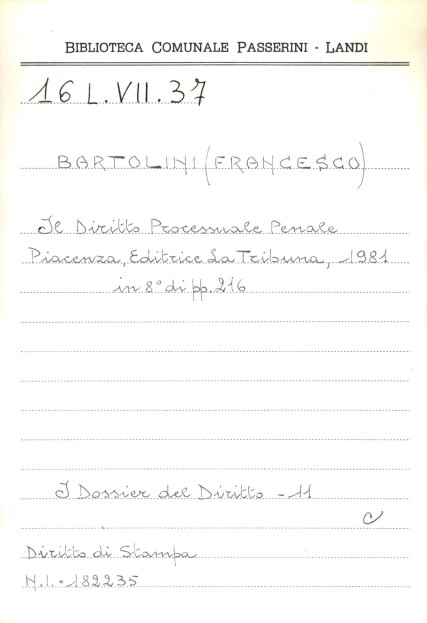 BIBLIOTECA COMUNALE PASSERINI - LANDI
16 L. VII. 37
BARTOLINI (FRANCESCO)
Il Diritto Processuale Penale
Piacenza, Editrice La Tribuna, 1981
in 8° di pp. 216
I Dossier del Diritto - 11
C
Diritto di Stampa
N.I. = 182235